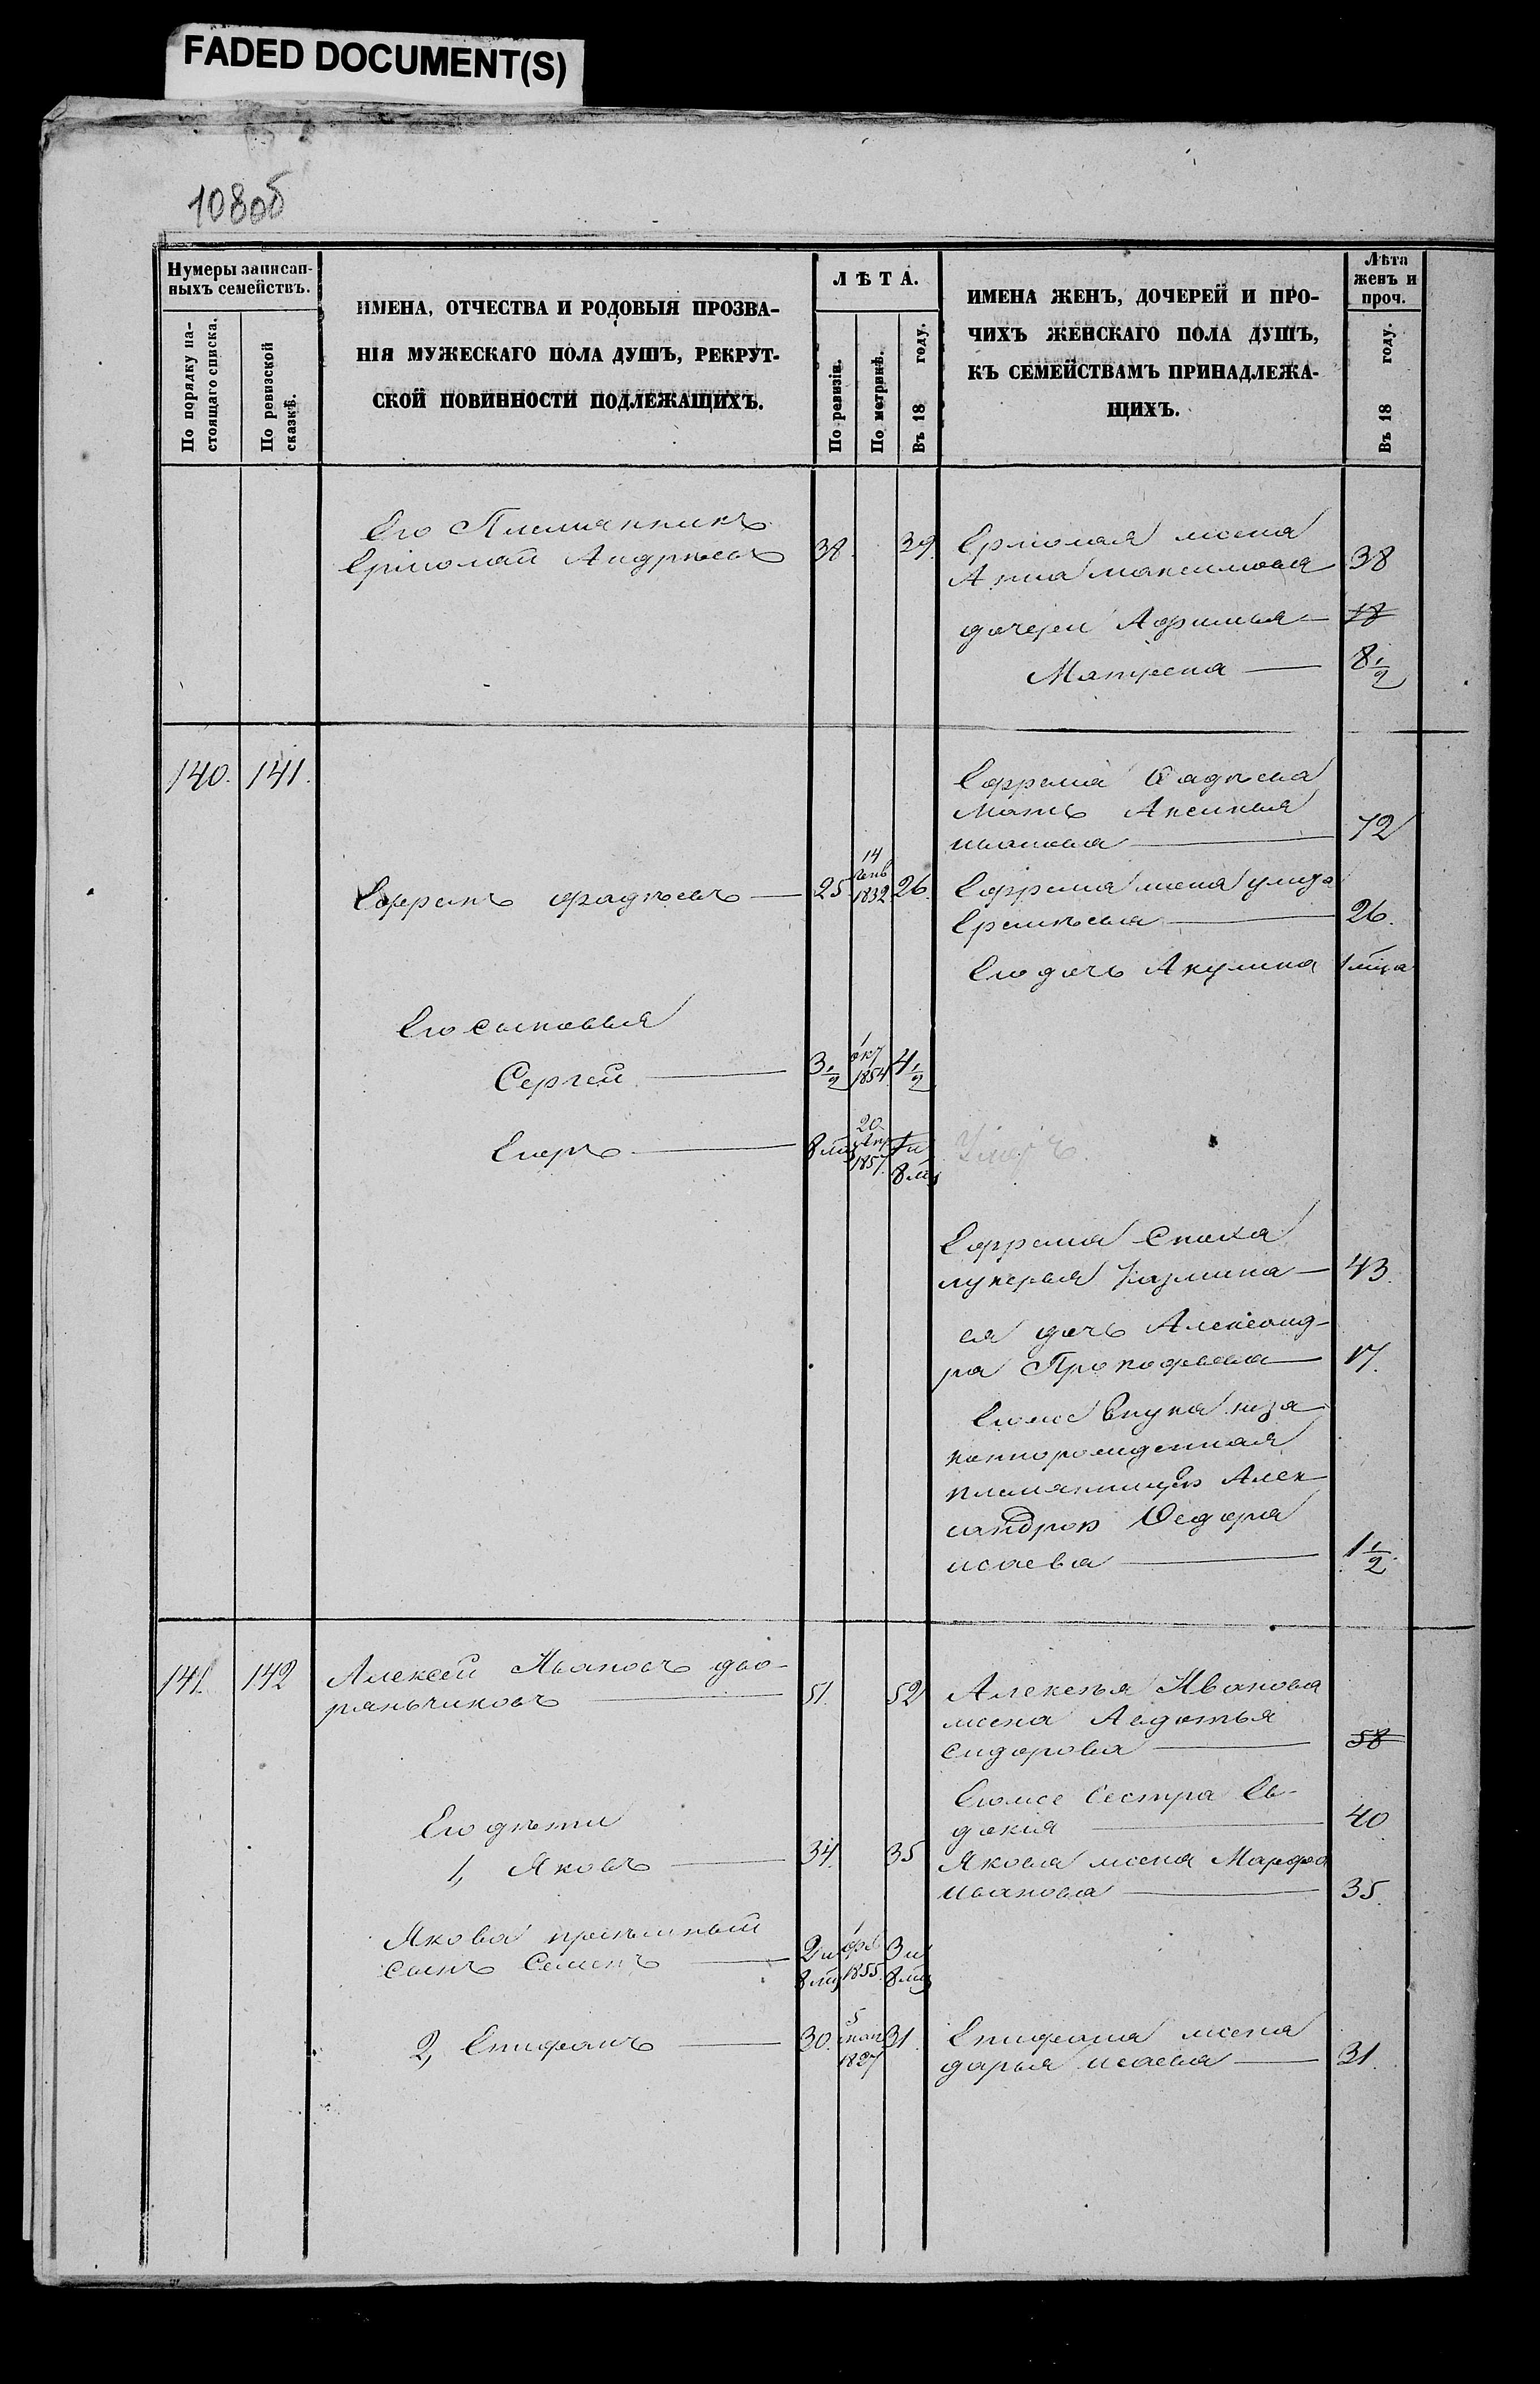 FADED DOCUMENT(S)
108об
Нумеры записан-
ныхъ семействъ.
По порядку на-
стоящаго списка.
По ревизской
сказкѣ.
ИМЕНА, ОТЧЕСТВА И РОДОВЫЯ ПРОЗВА-
НІЯ МУЖЕСКАГО ПОЛА ДУШЪ, РЕКРУТ-
СКОЙ ПОВИННОСТИ ПОДЛЕЖАЩИХЪ.
ЛѢТА.
По ревизіи.
По метрикѣ.
Въ 18 году.
ИМЕНА ЖЕНЪ, ДОЧЕРЕЙ И ПРО-
ЧИХЪ ЖЕНСКАГО ПОЛА ДУШЪ,
КЪ СЕМЕЙСТВАМЪ ПРИНАДЛЕЖА-
ЩИХЪ.
Лѣта
женъ и
проч.
Въ 18 году.
Его Племянникъ
Ермолай Андрѣевъ 38. 39.
Ермолая жена
Анна Максимова 38
дочери Афимья 18
Матрена 8 1/2
140. 141.
Ефрема Фадѣева
мать Аксинья
иванова 72
Ефремъ фадѣевъ 25 14 генв 1832 26.
Ефрема жена улита
Еремѣева 26.
Его дочь Акулина 1 мца
Его сыновья
Сергей 3 1/2 1 окт 1854 4 1/2
Егоръ 8 мц 20 апр 1857 1 и 8 мц
Умеръ.
Ефрема Сноха
лукерья Казмина 43.
ея дочь Александ-
ра Прокофьева 17.
Егоже внука неза
коннорожденная
племянницы Алек
сандры Федора
исаева 1 1/2.
141. 142
Алексей Ивановъ дво-
рянчиковъ 51. 52
Алексѣя Иванова
жена Авдотья
Сидорова 58
Егоже Сестра Ев-
докия 40
Его дѣти
1, Яковъ 34. 35
Якова жена Марфа
иванова 35.
Якова приемный
сынъ Семенъ 2 и 8 мц 1 фев 1855. 3 и 8 мц
2, Епифанъ 30. 5 1827 31.
Епифана жена
дарья исаева 31.